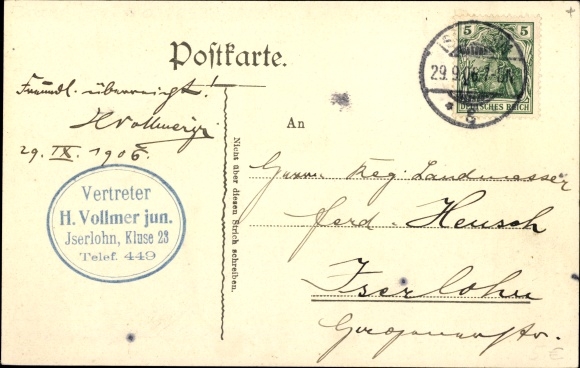 Postkarte.
5 5
DEUTSCHES REICH
29.9.06. 7-8N.
Freundl. überreicht!
HVollmerjr
29. IX. 1906.
Vertreter
H. Vollmer jun.
Jserlohn, Kluse 23
Telef. 449
Nicht über diesen Strich schreiben.
An
Herrn Reg. Landmesser
Ferd. Heusch
Iserlohn